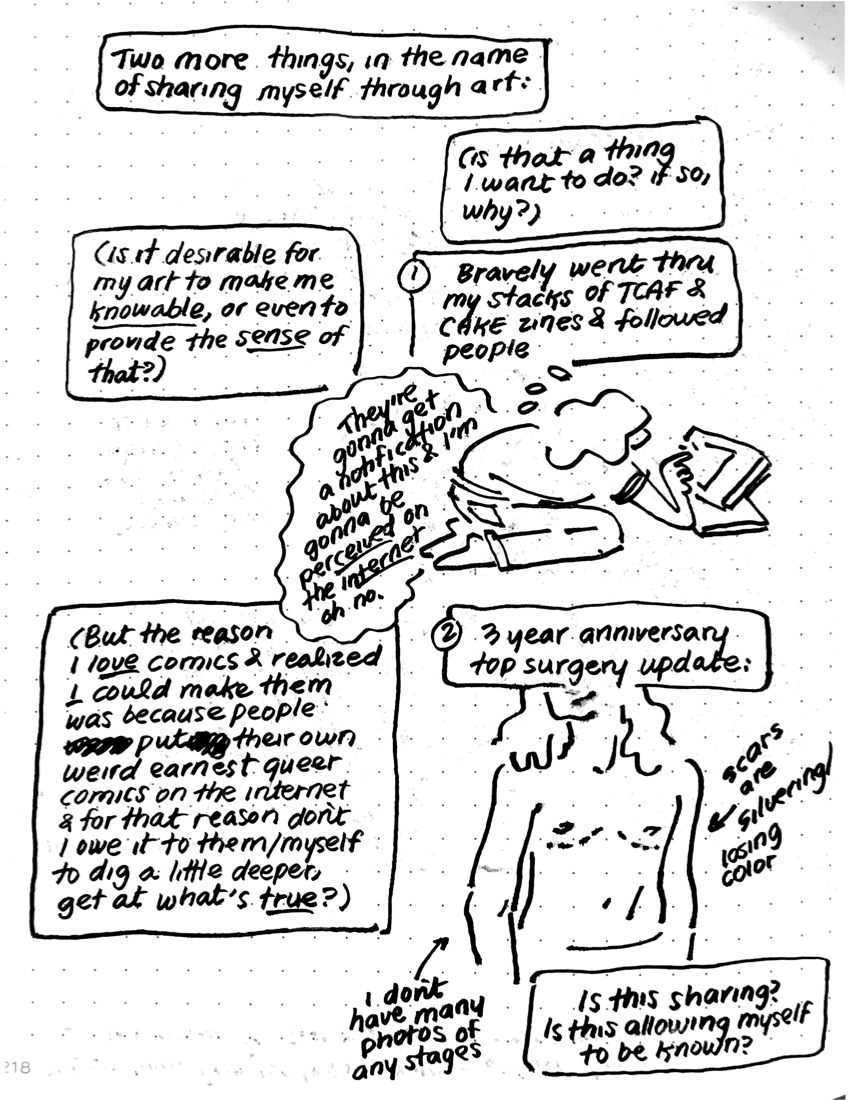 Two more things, in the name
of sharing myself through art:
(is that a thing
I want to do? if so,
why?)
(is it desirable for
my art to make me
knowable, or even to
provide the sense of
that?)
1 Bravely went thru
my stacks of TCAF &
CAKE zines & followed
people
They're
gonna get
a notification
about this & I'm
gonna be
perceived on
the internet
oh no.
(But the reason
I love comics & realized
I could make them
was because people
put their own
weird earnest queer
comics on the internet
& for that reason don't
I owe it to them/myself
to dig a little deeper,
get at what's true?)
2 3 year anniversary
top surgery update:
scars
are
silvering/
losing
color
I don't
have many
photos of
any stages
Is this sharing?
Is this allowing myself
to be known?
218